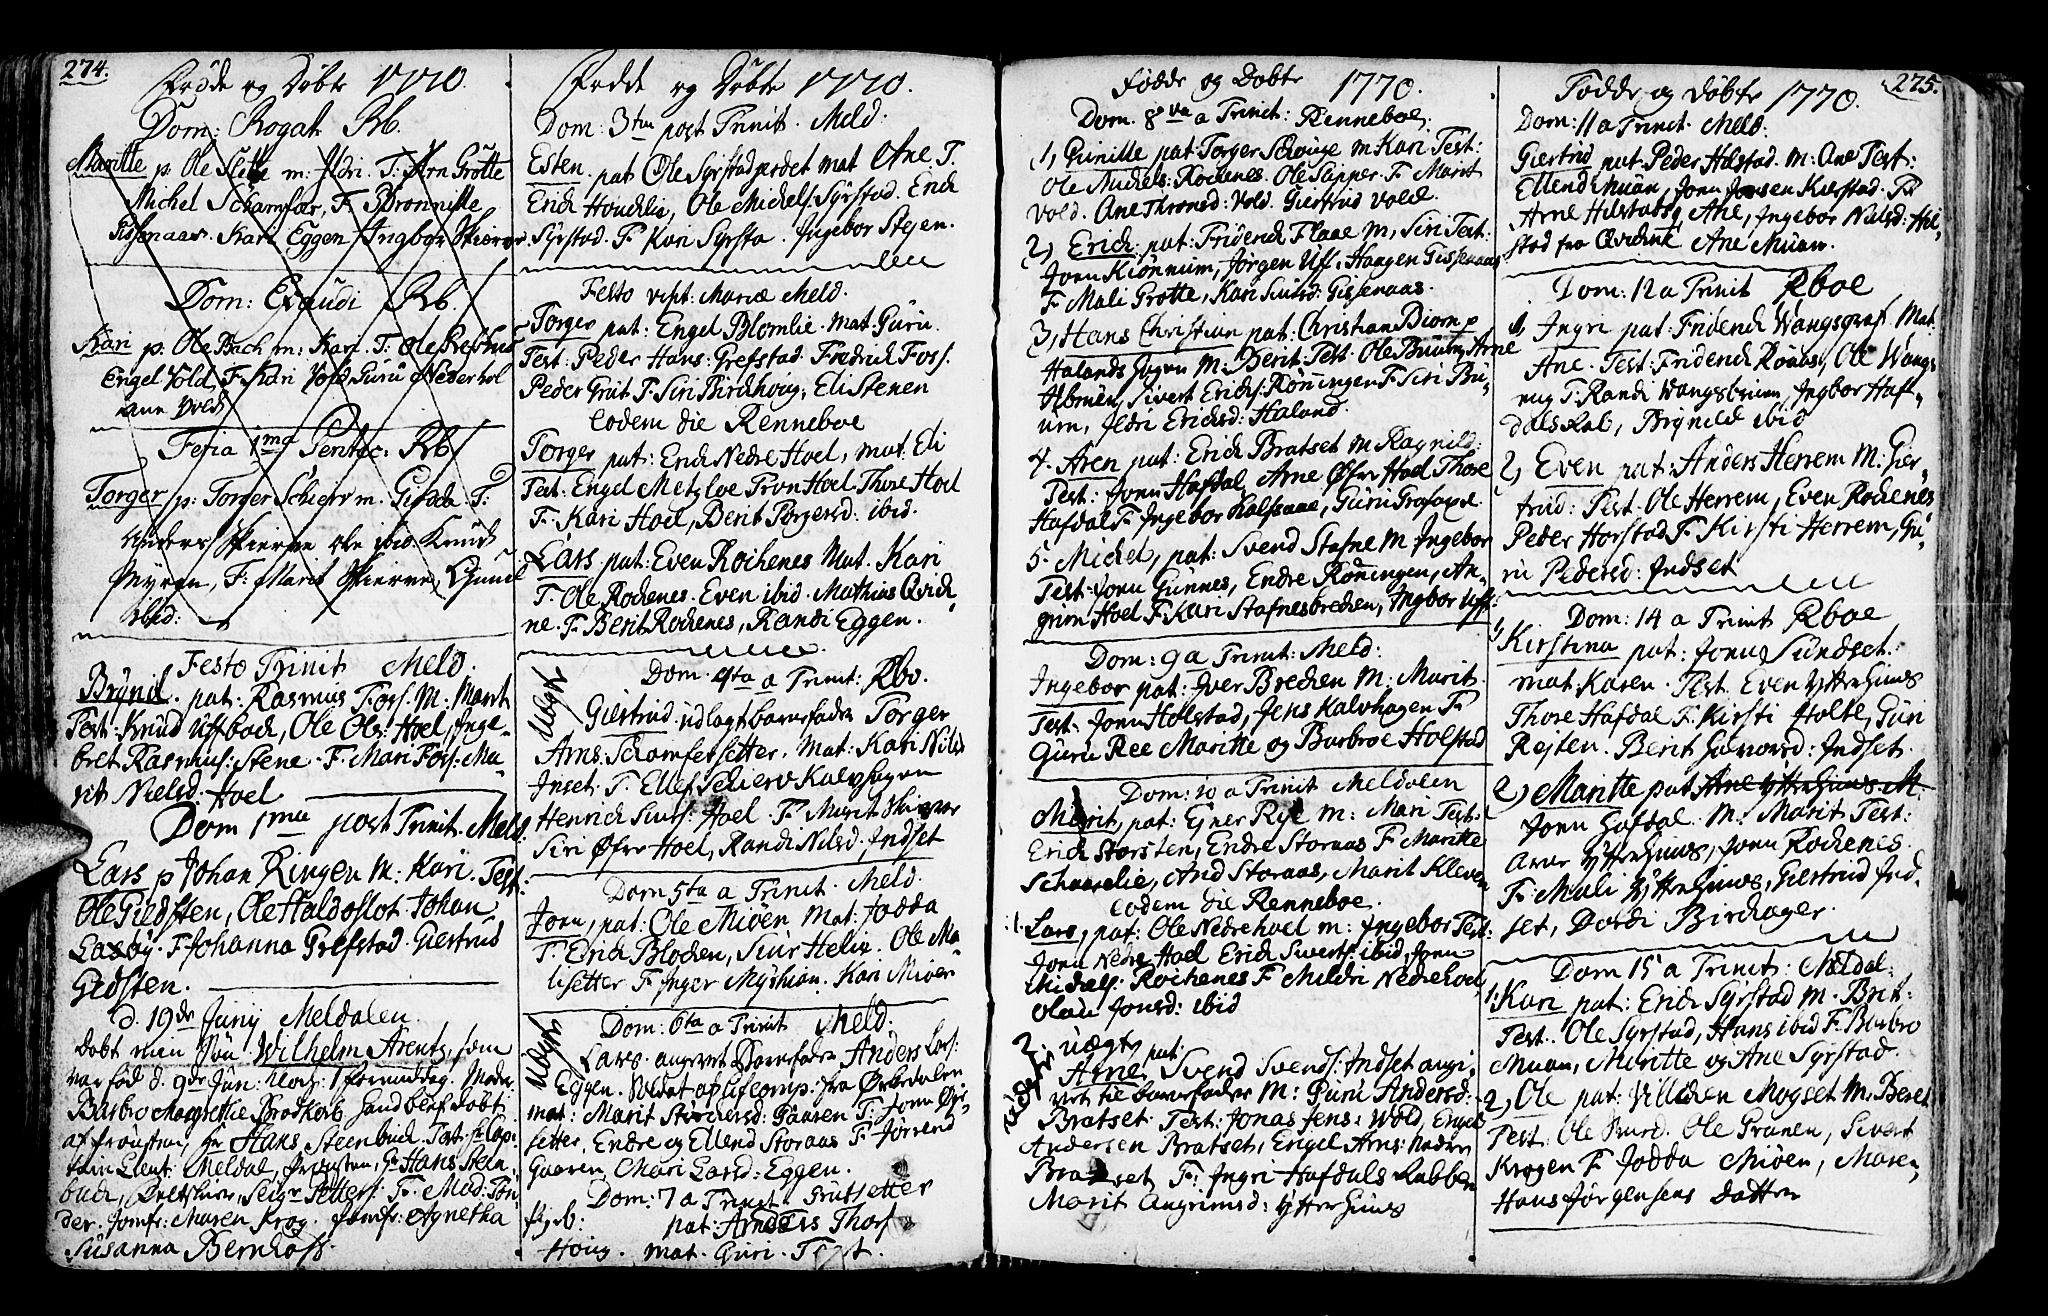 274.
Fødde og Døbte 1770.
Dom: Rogat. Rb.
Maritte p. Ole Slette m: Ildri. T. Arn Grøtte
Michel Scharnfær, F. Brønnille
Gissenaas. Kari Eggen Ingbor Skierve
Dom: Exaudi Rb
Kari p: Ole Bach m: Kari. T. Ole Grefstad
Engel Vold, F. Kari Vold Guru Nederhol
Ane Vold
Feria 1ma Pentec: Rb
Torger p: Torger Schierv m. Gidda T:
Anders Skierve Ole ibid: Knud
Myren, F: Marit Skierve, Giunil
ibid:
Festo Trinit Meld.
Brynil. pat: Rasmus Foss. M: Marit
Test: Knud Uffbach, Ole Ols: Hoel, Inge-
bret Rasmus: Stene. F. Mari Foss: Ma-
rit Nielsd. Hoel
Dom 1ma post Trinit. Meld:
Lars p Johan Ringen M: Kari. Test:
Ole Giedsten, Ole Haldoslot. Johan
Laxøy. F. Johanna Grefstad. Giertrud
Gidsten.
d. 19de Junij Meldalen.
døbt min Søn Wilhelm Arentz, som
var fød d. 9de Jun: Kloch: 1 formiddag. Moder
Barbro Magrethe Brodkorb, hand blef døbt
af Provsten, Hr Hans Steenbuch. Test: Capi-
tain Lieut: Meldal, Provsten, Hr Hans Steen-
buch, Seigr Petters: F. Mad: Tøn-
der. Jomfr: Maren Krog. Jomfr: Agnetha
Susanna Bernhoft.
Fødde og Døbte 1770.
Dom: 3tia post Trinit. Meld.
Esten. pat Ole Syrstadprøet mat Ane T.
Erich Houchlie, Ole Michels: Syrstad. Erich
Syrstad. F. Kari Syrsta. Ingebor Stegen.
Festo visit: Mariæ Meld.
Torger pat: Engel Blomlie. Mat: Guru.
Test: Peder Hans: Grefstad. Fredrich Foss.
Peder Grut F. Siri Birchhoug, Eli Stenen
eodem die Renneboe
Torger pat: Erich Nedre Hoel, mat: Eli
Test: Engel Metzloe Tron Hoel Thore Hoel
F. Kari Hoel, Berit Torgersd: ibid.
Lars pat: Even Rochenes Mat. Kari
T. Ole Rochenes. Even ibid. Mathias Qvich-
ne. F. Berit Rochenes, Randi Eggen.
Uægte
Dom. 4ta a Trinit: Rbo.
Giertrud: udlagt barnefader Torger
Arns. Schamfersetter. Mat: Kari Nilsd
Inset. T. Ellef Schierv Kalvhagen
Henrich Siurs: Hoel. F. Marit Skierver
Siri Øfre Hoel, Randi Nilsd. Indset
Dom 5ta a Trinit. Meld.
Jorn, pat: Ole Miøen Mat: Jodda
T. Erich Blochen, Siur Helin. Ole Ma-
lisetter F. Inger Myshion. Kari Miøen
Uægte
Dom: 6ta a Trinit Meld.
Lars. angivet Barnefader Anders Lars:
Eggen. Soldat af Lifcomp: fra Ørkedalen
mat: Marit Storchersd: Gaaren T. Jorn Øie-
setter, Endre og Ellend Storaas F. Jørrend
Gaaren, Mari Larsd: Eggen.
Dom: 7 a Trinit. Grutsetter
pat: Arnd Ols Thors
Houg. mat. Guri. Test.
Fødde og Døbte 1770.
Dom. 8va a Trinit: Renneboe,
1, Gunille pat: Torger Schouge M Kari Test:
Ole Michels: Rochenes. Ole Sapper. F. Marit
Vold. Ane Thronsd: Vold. Giertrud Vold.
2, Erich: pat: Friderich Flaae M, Siri Test:
Jorn Kiønnum, Jørgen Uff: Haagen Gissenaas
F. Mali Grotte, Kari Siursd: Gissenaas.
3, Hans Christian pat: Christian Biørn p
Halands Hogen M: Berit. Test. Ole Buum, Arne
Albruen, Sivert Erichs: Rønningen F. Siri Bu-
um, Ildri Ericksd: Haland.
4. Aren pat: Erich Bratset M Ragnild:
Test: Jorn Hafdal, Arne Øfre Hoel Thore
Hafdal F. Ingebor Halfsaae, Guru
5. Michel, pat: Svend Stafne M Ingebor
Test: Jorn Gunnes, Endre Rønningen, An-
grim Hoel F. Kari Stafnesbrechen, Ingbor Uff:
Dom: 9 a Trinit: Meld:
Ingebor pat: Iver Brechen M: Marit.
Test. Jorn Holstad, Jens Kalvhagen F.
Guru Ree Maritte og Barbroe Holstad
Dom: 10 a Trinit Meldalen
Marit, pat: Ejner Rise m: Mari Test:
Erich Storsten, Endre Storaas F. Maritte
Schaarelie, Arid Storaas, Marit Kleven
eodem die Renneboe.
1. Lars, pat: Ole Nedre hoel m: Ingebor Test:
Jorn Nedre Hoel Erich Siverts: ibid, Jorn
Michels: Rochenes F. Meldri Nedrehoel,
Olau Jonsd: ibid
2. uægte pat:
Arne. Svend Svends: Indset angi-
vet til barnefader M: Guru Andersd:
Bratset. Test: Jonas Jens: Wold, Engel
Andersen Bratset, Engel Arns: Nedre
Bratset F: Ingri Hafdals Rabben
Marit Angrimsd: Ytterhuus
275.
Fødde og Døbte 1770.
Dom: 11 a Trinit. Meld.
Giertrud pat: Peder Holstad. M: Ane Test:
Ellend Muan, Jorn Jonsen Kierstad. P.
Arne Hilstad, Ane, Ingebor Nielsd: Hil-
stad fra Qvickne Ane Muan.
Dom: 12 a Trinit Rboe
1, Ingri pat: Friderich Wangsgraf Mat.
Ane. Test: Friderich Rønaas, Ole Wangs
F. Randi Wangsbruun, Ingbor Haf-
dals Rab, Brynild ibid
2, Even pat: Anders Herrem M: Gier-
trud: Test. Ole Herrem, Even Rochenes
Peder Horstad F. Kirsti Herrem, Gu-
ru Pedersd: Indset
Dom: 14 a Trinit Rboe
1, Kirstina pat: Jorn Sundset.
mat Karen. Test. Even Ytterhuus
Thore Hafdal F. Kirsti Holte, Guri
Rejten. Berit Havorsd: Indset.
2, Maritte pat Arne Ytterhuus M.
Jorn Hafdal. M: Marit Test:
Arne Ytterhuus, Jorn Rochenes.
F. Mali Ytterhuus, Giertrud Ind-
set, Dordi Birchager.
Dom 15 a Trinit: Meldal:
1. Kari pat: Erich Syrstad M. Brit:
Test. Ole Syrstad, Hans ibid F. Barbro
Muan, Maritte og Ane Syrstad.
2, Ole pat: Villichen Mogset M. Beret
Test: Ole Ole Granen, Sivert
Krogen F. Jodda Miøen, Maren,
Hans Jørgensens Datter